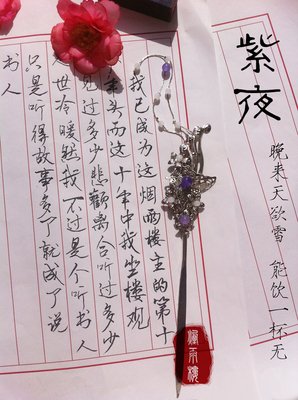 紫夜
晚来天欲雪 能饮一杯无
我已成为这烟雨楼主的第十
年头而这十年中我坐楼观
见过多少悲歡离合听过多少
人世冷暖然我不过是个听书人
只是听得故事多了就成了说
书人
烟雨楼